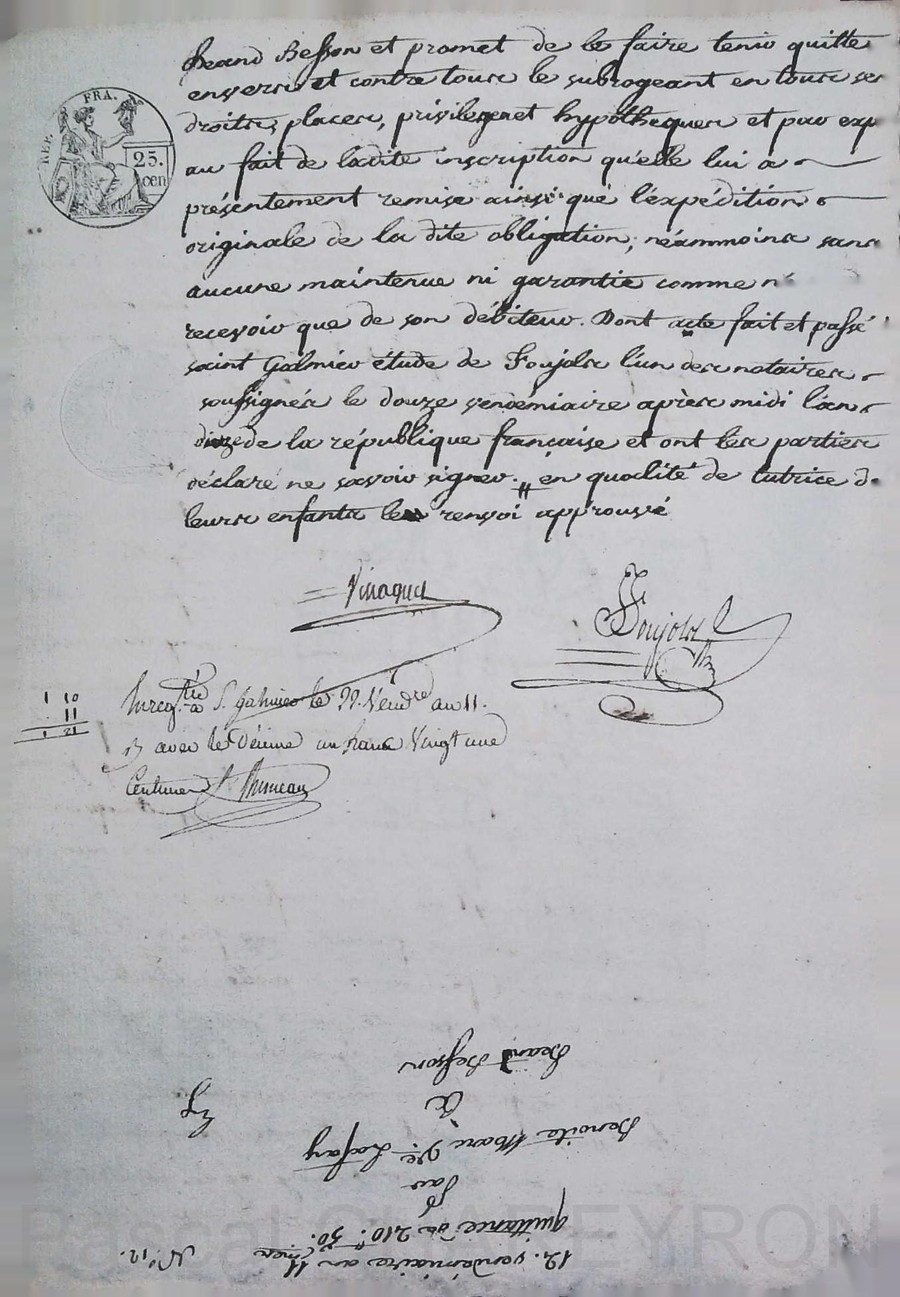 REP. FRA.
25.
cen
Jeand Besson et promet de le faire tenir quitte
envers et contre tous le subrogeant en tous ses
droits, places, privileges et hypotheques et par exp
au fait de ladite inscription qu'elle lui a
présentement remise ainsi que l'expédition
originale de la dite obligation, néammoins sans
aucune maintenue ni garantie comme n'
recevoir que de son débiteur. Dont acte fait et passé
saint Galmier étude de Foujols l'un des notaires
soussignés le douze vendémiaire après midi l'an
onze de la république française et ont les parties
déclaré ne savoir signer. // en qualité de tutrice de
leurs enfants renvoi approuvé
Foujols
1 10
11
1 21
Enreg.tré à S. Galmier le 22. Vend.re an 11.
avec le Décime un franc Vingt une
Centimes
12. vendémiaire an 11
N.° 12.
quittance de 210.tt 50. cmes
par
Benoite Marc V.e Lafay
à
Jeand Besson
Pascal CHAPEYRON